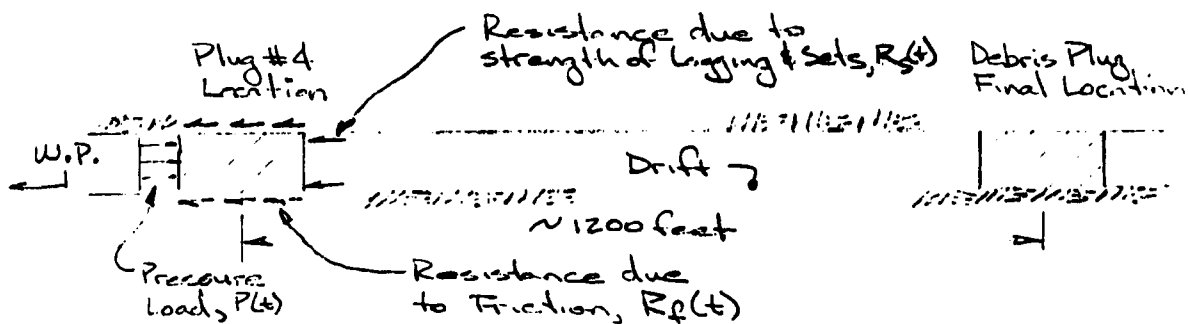 Resistance due to
strength of Lagging & Sets, Rs(t)
Plug #4
Location
Debris Plug,
Final Location
W.P.
Drift
~1200 feet
Pressure
Load, P(t)
Resistance due
to Friction, Rf(t)